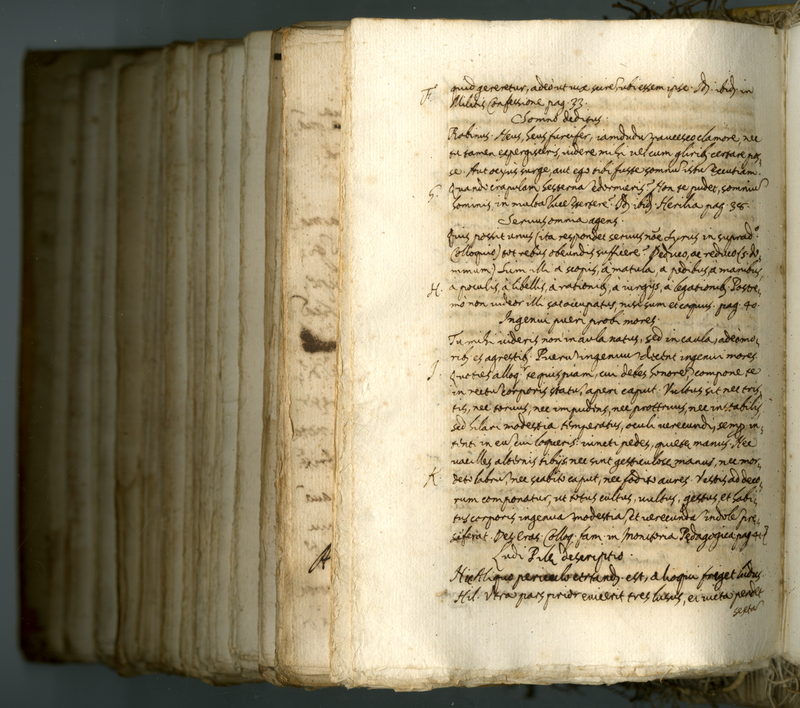 F. quid gereretur, adeò ut vix sure ubi essem ipse. Id. ibid. in
Militis Confessione pag. 33.
Somno deditus.
Rabinus. Heus, heus furcifer, iamdudu raucesco clamore, nec
tu tamen expergisceris, videre mihi vel cum glirib. certare pos-
se. Aut ocyus surge, aut ego tibi fuste somnu istu excutiam.
G. Quando crapulam hesterna edormieris? Non te pudet, somnu
hominis in multa luce stertere? Id. ibid. Herilia pag. 38.
Servus omnia agens.
Quis possit unus (ita respondet servus noe Syrus in suprad.o
Colloquio) tot rebus obeundis sufficere? Deduco, ac reduco (s. do-
minum) Sum illi a scopis, à matula, a pedibus, a manibus,
H. a poculis, à libellis, à rationib. à iurgijs, à legationib. Postre-
mò non videor illi sat occupatus, nisi sum et coquus. pag. 40.
Ingenui pueri probi mores.
Tu mihi videris non in aula natus, sed in caula, adeò mo-
rib. es agrestib. Pueru ingenuu decent ingenui mores.
J. Quoties alloq. te quispiam, cui debes honore, compone te
in rectu corporis statu, aperi caput. Vultus sit nec tris-
tis, nec torvus, nec impudens, nec protervus, nec instabilis
sed hilari modestia temperatus, oculi verecundi, semp. in-
tenti in eu, cui loqueris: iuncti pedes, quietæ manus. Nec
vacilles alternis tibijs nec sint gesticulosæ manus, nec mor-
K. deto labru, nec scabito caput, nec fodito aures. Vestis ad deco-
rum componatur, ut totus cultus, vultus, gestus et habi-
tus corporis ingenua modestia, et verecunda indole præ-
se ferat. Des. Eras. Colloq. fam. in Monitoria Pedagogica pag. 41
Ludi Pilæ descriptio.
Hic aliquo periculo certand. est, alioqui friget ludus
Hil. Utra pars prior evicerit tres lusus, ei victa pendet
sexta